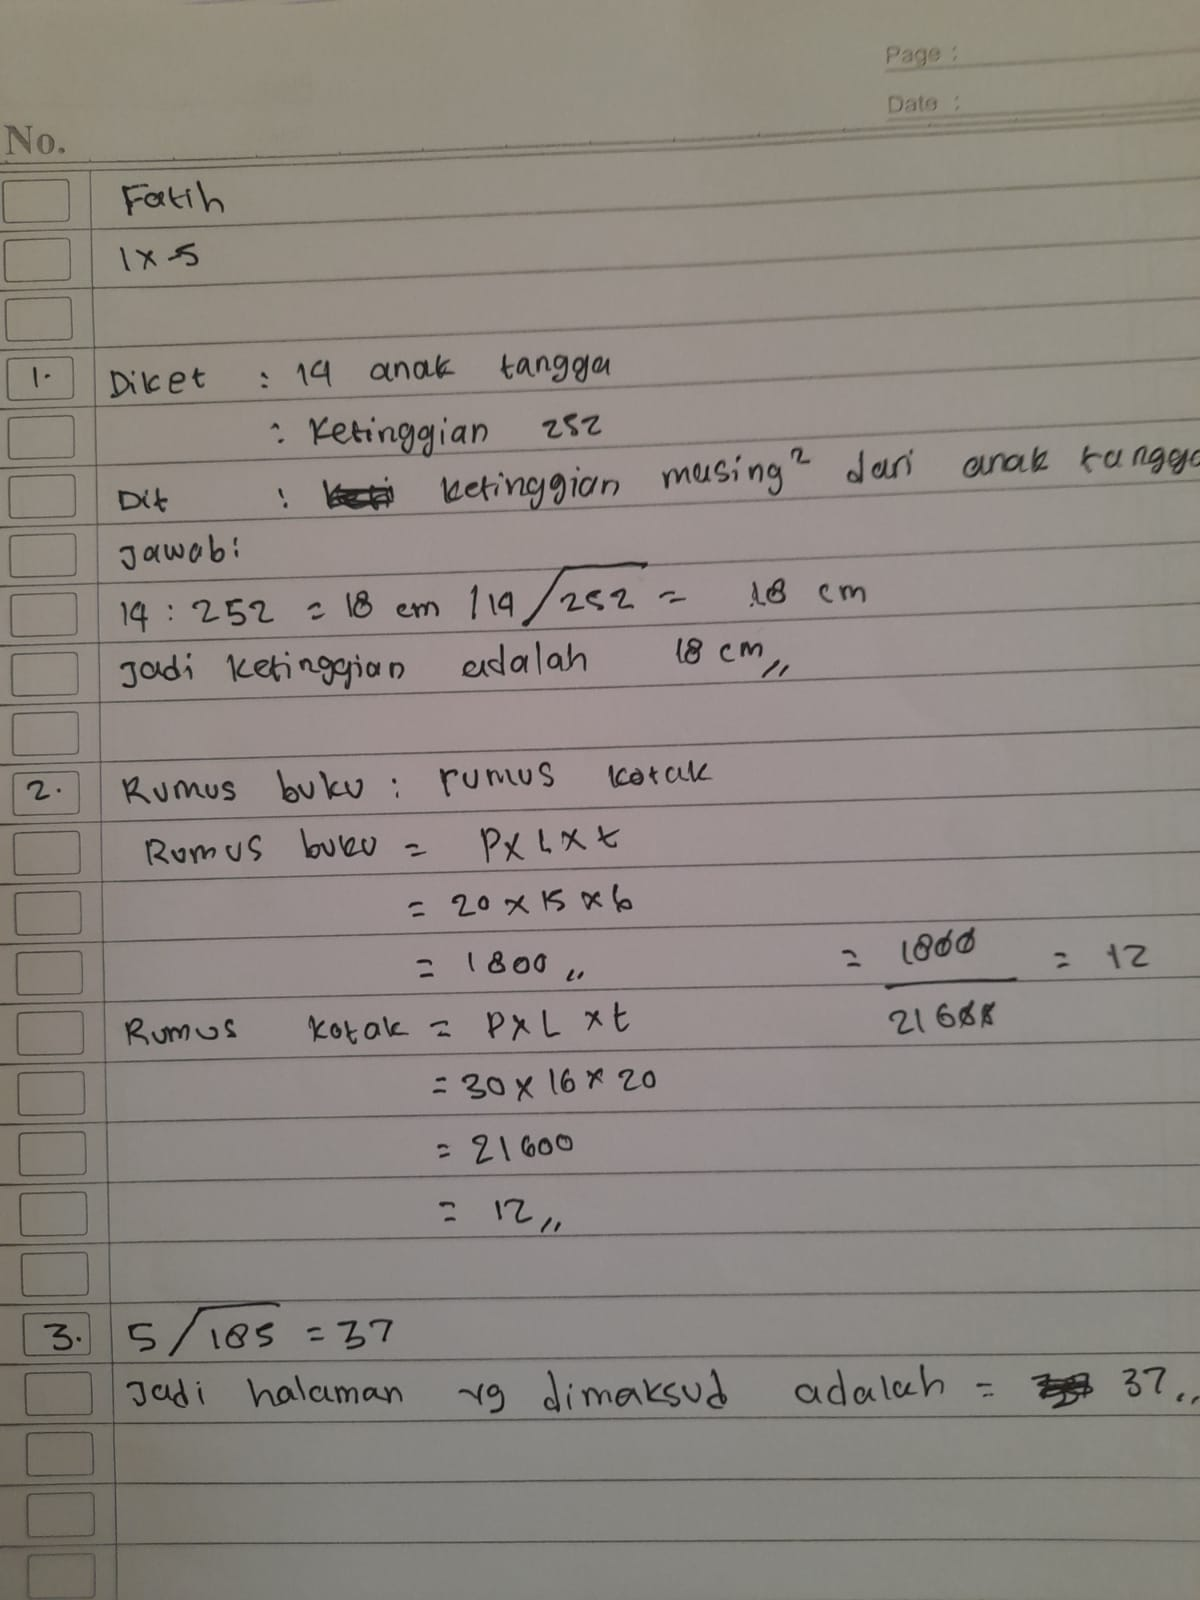 Page :
Date :
No.
Fatih
1x5
1. Diket : 14 anak tangga
: Ketinggian 252
Dit : ketinggian masing² dari anak tangga
Jawab:
14 : 252 = 18 cm / 14 / 252 = 18 cm
Jadi ketinggian adalah 18 cm,,
2. Rumus buku : rumus kotak
Rumus buku = P x L x t
= 20 x 15 x 6
= 1800 ,, = 1800 / 21600 = 12
Rumus kotak = P x L x t
= 30 x 16 x 20
= 21600
= 12 ,,
3. 5 / 185 = 37
Jadi halaman yg dimaksud adalah = 37,,